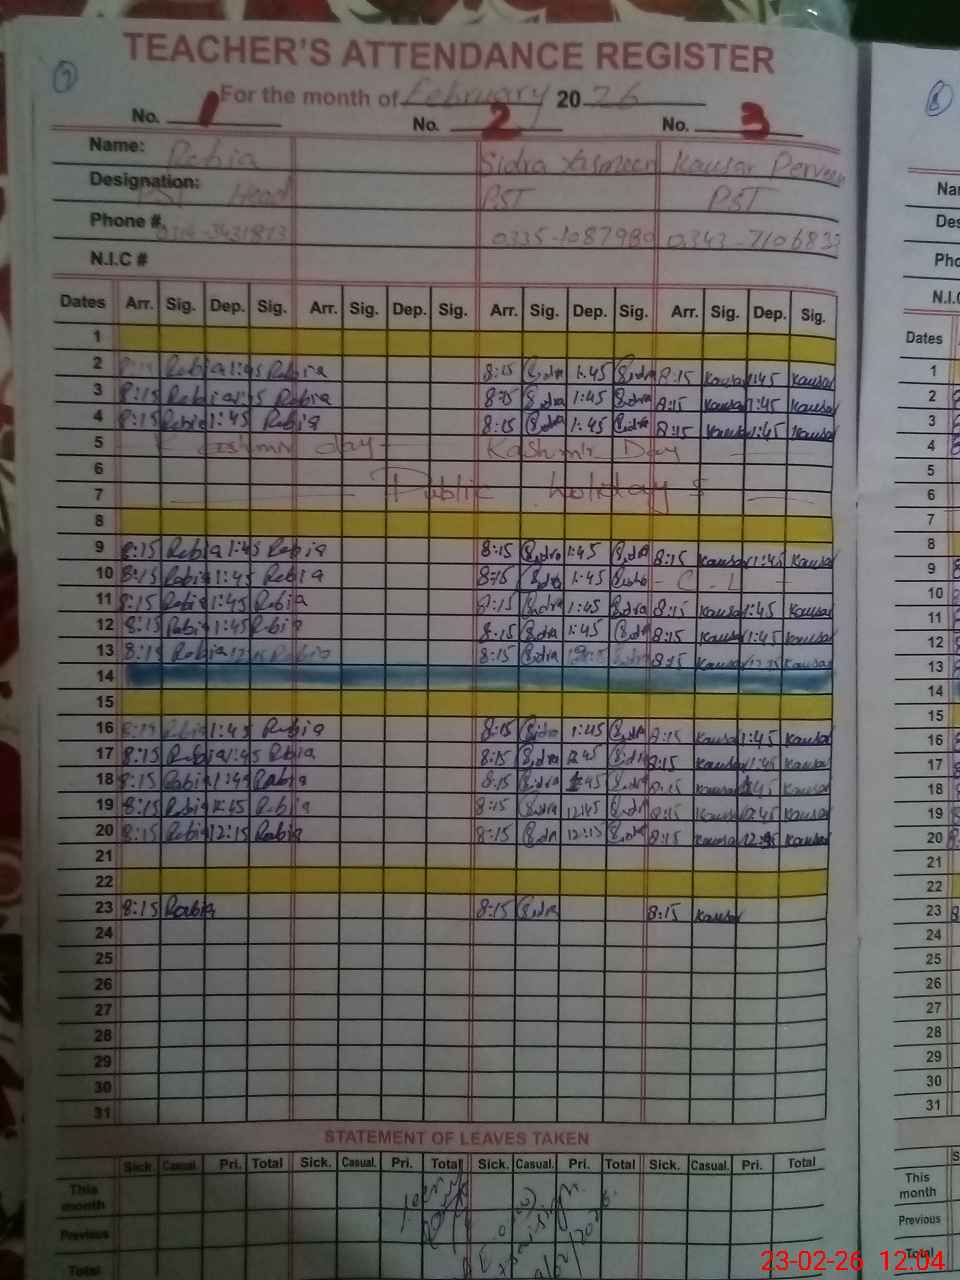 TEACHER'S ATTENDANCE REGISTER
For the month of February 2026
No. 1 No. 2 No. 3
Name: Rabia Sidra Yasmeen Kausar Perveen
Designation: PST Head PST PST
Phone #. 0335-1087980
N.I.C #
Dates Arr. Sig. Dep. Sig. Arr. Sig. Dep. Sig. Arr. Sig. Dep. Sig. Arr. Sig. Dep. Sig.
1
2 Rabia 1:45 Rabia 8:15 Sidra 1:45 Sidra 8:15 Kausar 1:45 Kausar
3 8:15 Rabia 1:45 Rabia 8:15 Sidra 1:45 Sidra 8:15 Kausar 1:45 Kausar
4 8:15 Rabia 1:45 Rabia 8:15 Sidra 1:45 Sidra 8:15 Kausar 1:45 Kausar
5 Kashmir day Kashmir Day
6
7 Public holidays
8
9 8:15 Rabia 1:45 Rabia 8:15 Sidra 1:45 Sidra 8:15 Kausar 1:45 Kausar
10 8:15 Rabia 1:45 Rabia 8:15 Sidra 1:45 Sidra - C - L -
11 8:15 Rabia 1:45 Rabia 8:15 Sidra 1:45 Sidra 8:15 Kausar 1:45 Kausar
12 8:15 Rabia 1:45 Rabia 8:15 Sidra 1:45 Sidra 8:15 Kausar 1:45 Kausar
13 8:15 Rabia Rabia 8:15 Sidra Sidra 8:15 Kausar Kausar
14
15
16 Rabia 1:45 Rabia 8:15 Sidra 1:45 Sidra 8:15 Kausar 1:45 Kausar
17 8:15 Rabia 1:45 Rabia 8:15 Sidra Sidra 8:15 Kausar 1:45 Kausar
18 8:15 Rabia 1:45 Rabia 8:15 Sidra 1:45 Sidra 8:15 Kausar 1:45 Kausar
19 8:15 Rabia 12:45 Rabia 8:15 Sidra 12:45 Sidra 8:15 Kausar 12:45 Kausar
20 8:15 Rabia 12:15 Rabia 8:15 Sidra 12:15 Sidra 8:15 Kausar Kausar
21
22
23 8:15 Rabia 8:15 Sidra 8:15 Kausar
24
25
26
27
28
29
30
31
STATEMENT OF LEAVES TAKEN
Sick. Casual. Pri. Total Sick. Casual. Pri. Total Sick. Casual. Pri. Total Sick. Casual. Pri. Total
This month
Previous
Total
8
Dates
1
2
3
4
5
6
7
8
9
10
11
12
13
14
15
16
17
18
19
20
21
22
23
24
25
26
27
28
29
30
31
This month
Previous
Total
23-02-26 12:04